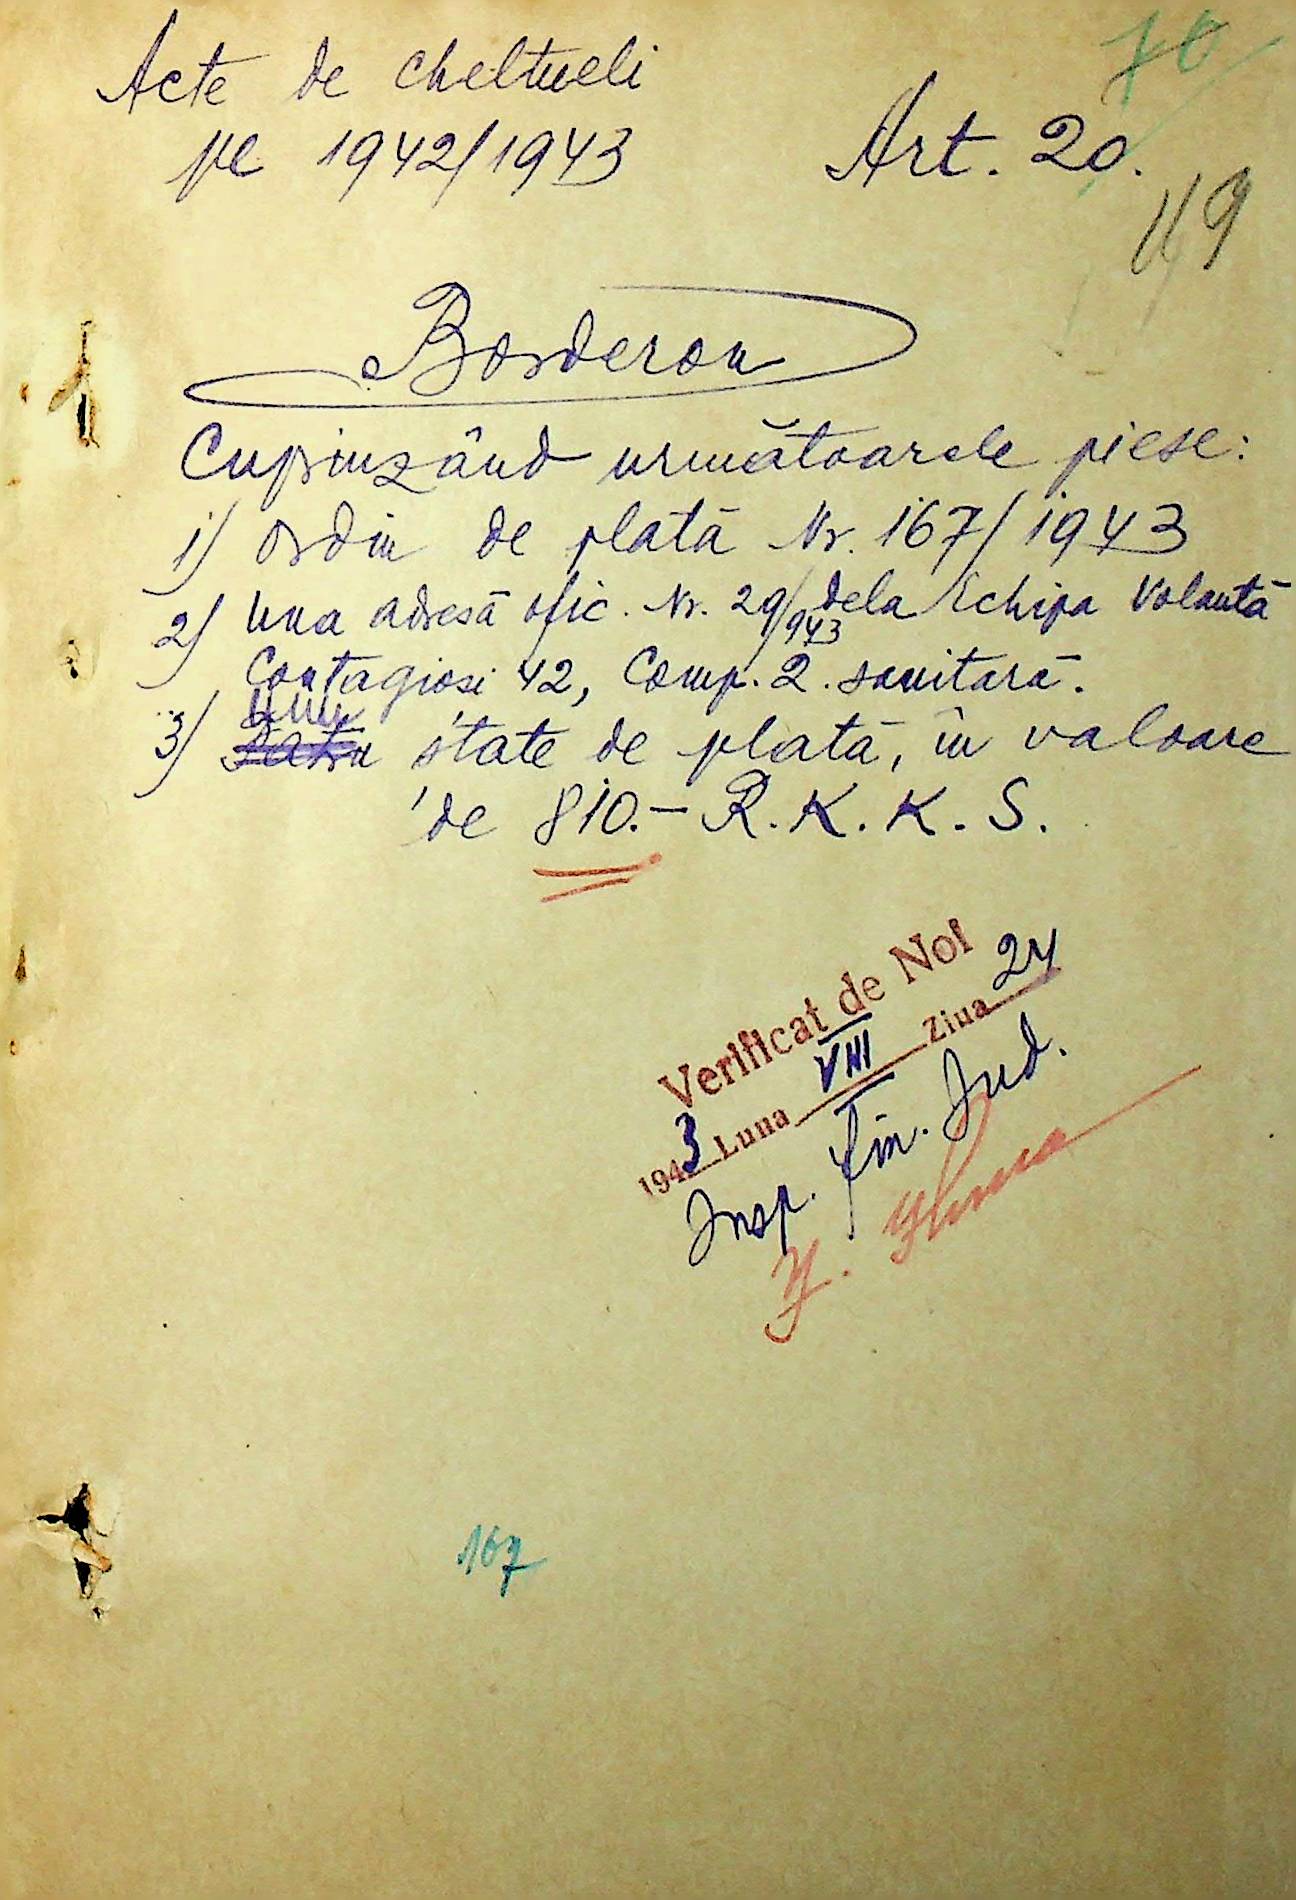 70
Acte de cheltueli
pe 1942/1943
Art. 20.
119
Borderou
Cuprinzând următoarele piese:
1) Ordin de plată Nr. 167/1943
2) Una adresă ofic. Nr. 29/943 dela Echipa Volantă
Contagiosi 42, Comp. 2. sanitară.
3) unu state de plată, în valoare
de 810.- R.K.K.S.
Verificat de Noi
1943 Luna VIII Ziua 24
Insp. fin. Jud.
167